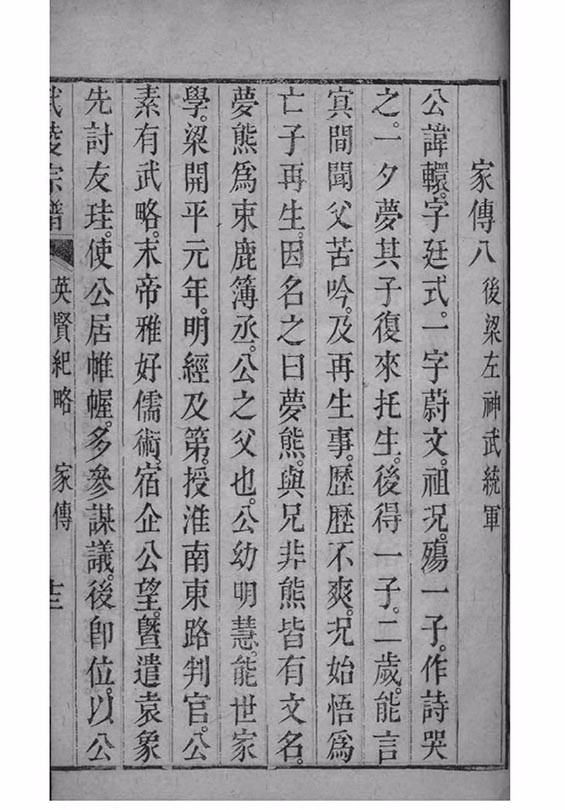 家傳八 後梁左神武統軍
公諱轘。字廷式。一字蔚文。祖况。殤一子。作詩哭
之。一夕夢其子復來托生。後得一子。二歲。能言
冥間聞父苦吟。及再生事。歷歷不爽。况始悟爲
亡子再生。因名之曰夢熊。與兄非熊皆有文名。
夢熊爲束鹿簿丞。公之父也。公幼明慧。能世家
學。梁開平元年。明經及第。授淮南東路判官。公
素有武略。末帝雅好儒術。宿企公望。曁遣袁象
先討友珪。使公居帷幄。多參謀議。後卽位。以公
武陵宗譜 英賢紀略 家傳 十三